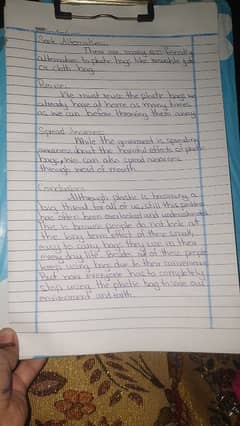 Seek Alternatives:
There are many eco friendly
alternatives to plastic bags like reusable jute
or cloth bag.
Reuse:
We must reuse the plastic bags we
already have at home as many times
as we can before throwing them away.
Spread Awareness:
While the government is spreading
awareness about the harmful effects of plastic
bags, we can also spread awareness
through word of mouth.
Conclusion:
Although plastic is becoming a
big threat for all of us, still this problem
has often been overlooked and underestimated.
This is because people do not look at
the long term effect of these small,
easy to carry bags they use in their
every day life. Besides all of these people
keep using bags due to their convenience.
But now everyone has to completely
stop using the plastic bag to save our
environment and earth.